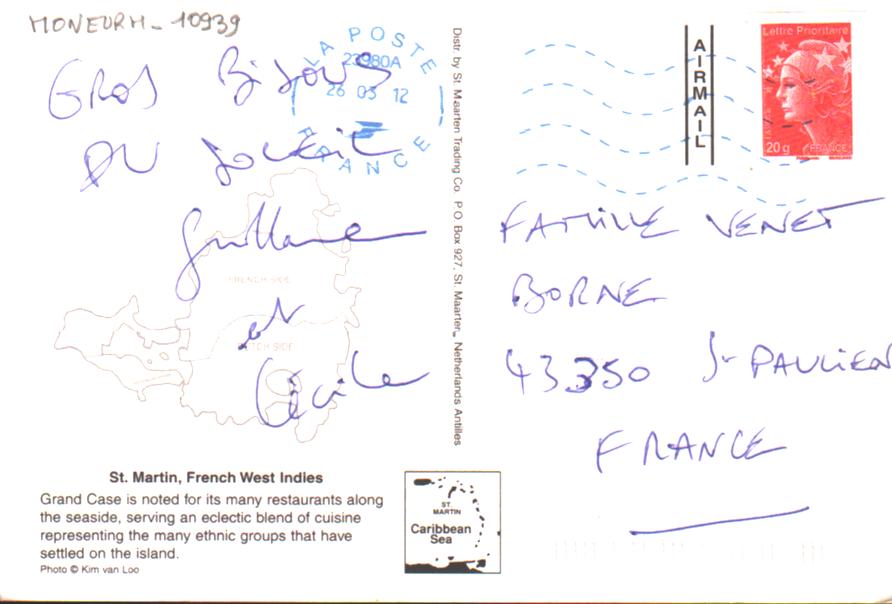 MONEURM-10939
GROS BISOUS
DU SOLEIL
Guillaume
et
Cécile
FRENCH SIDE
DUTCH SIDE
St. Martin, French West Indies
Grand Case is noted for its many restaurants along
the seaside, serving an eclectic blend of cuisine
representing the many ethnic groups that have
settled on the island.
Photo © Kim van Loo
LA POSTE
23980A
26 03 12
FRANCE
Distr. by St. Maarten Trading Co. P.O. Box 927, St. Maarten, Netherlands Antilles
ST
MARTIN
Caribbean
Sea
AIRMAIL
Lettre Prioritaire
20g FRANCE
FAMILLE VENET
BORNE
43350 St PAULIEN
FRANCE